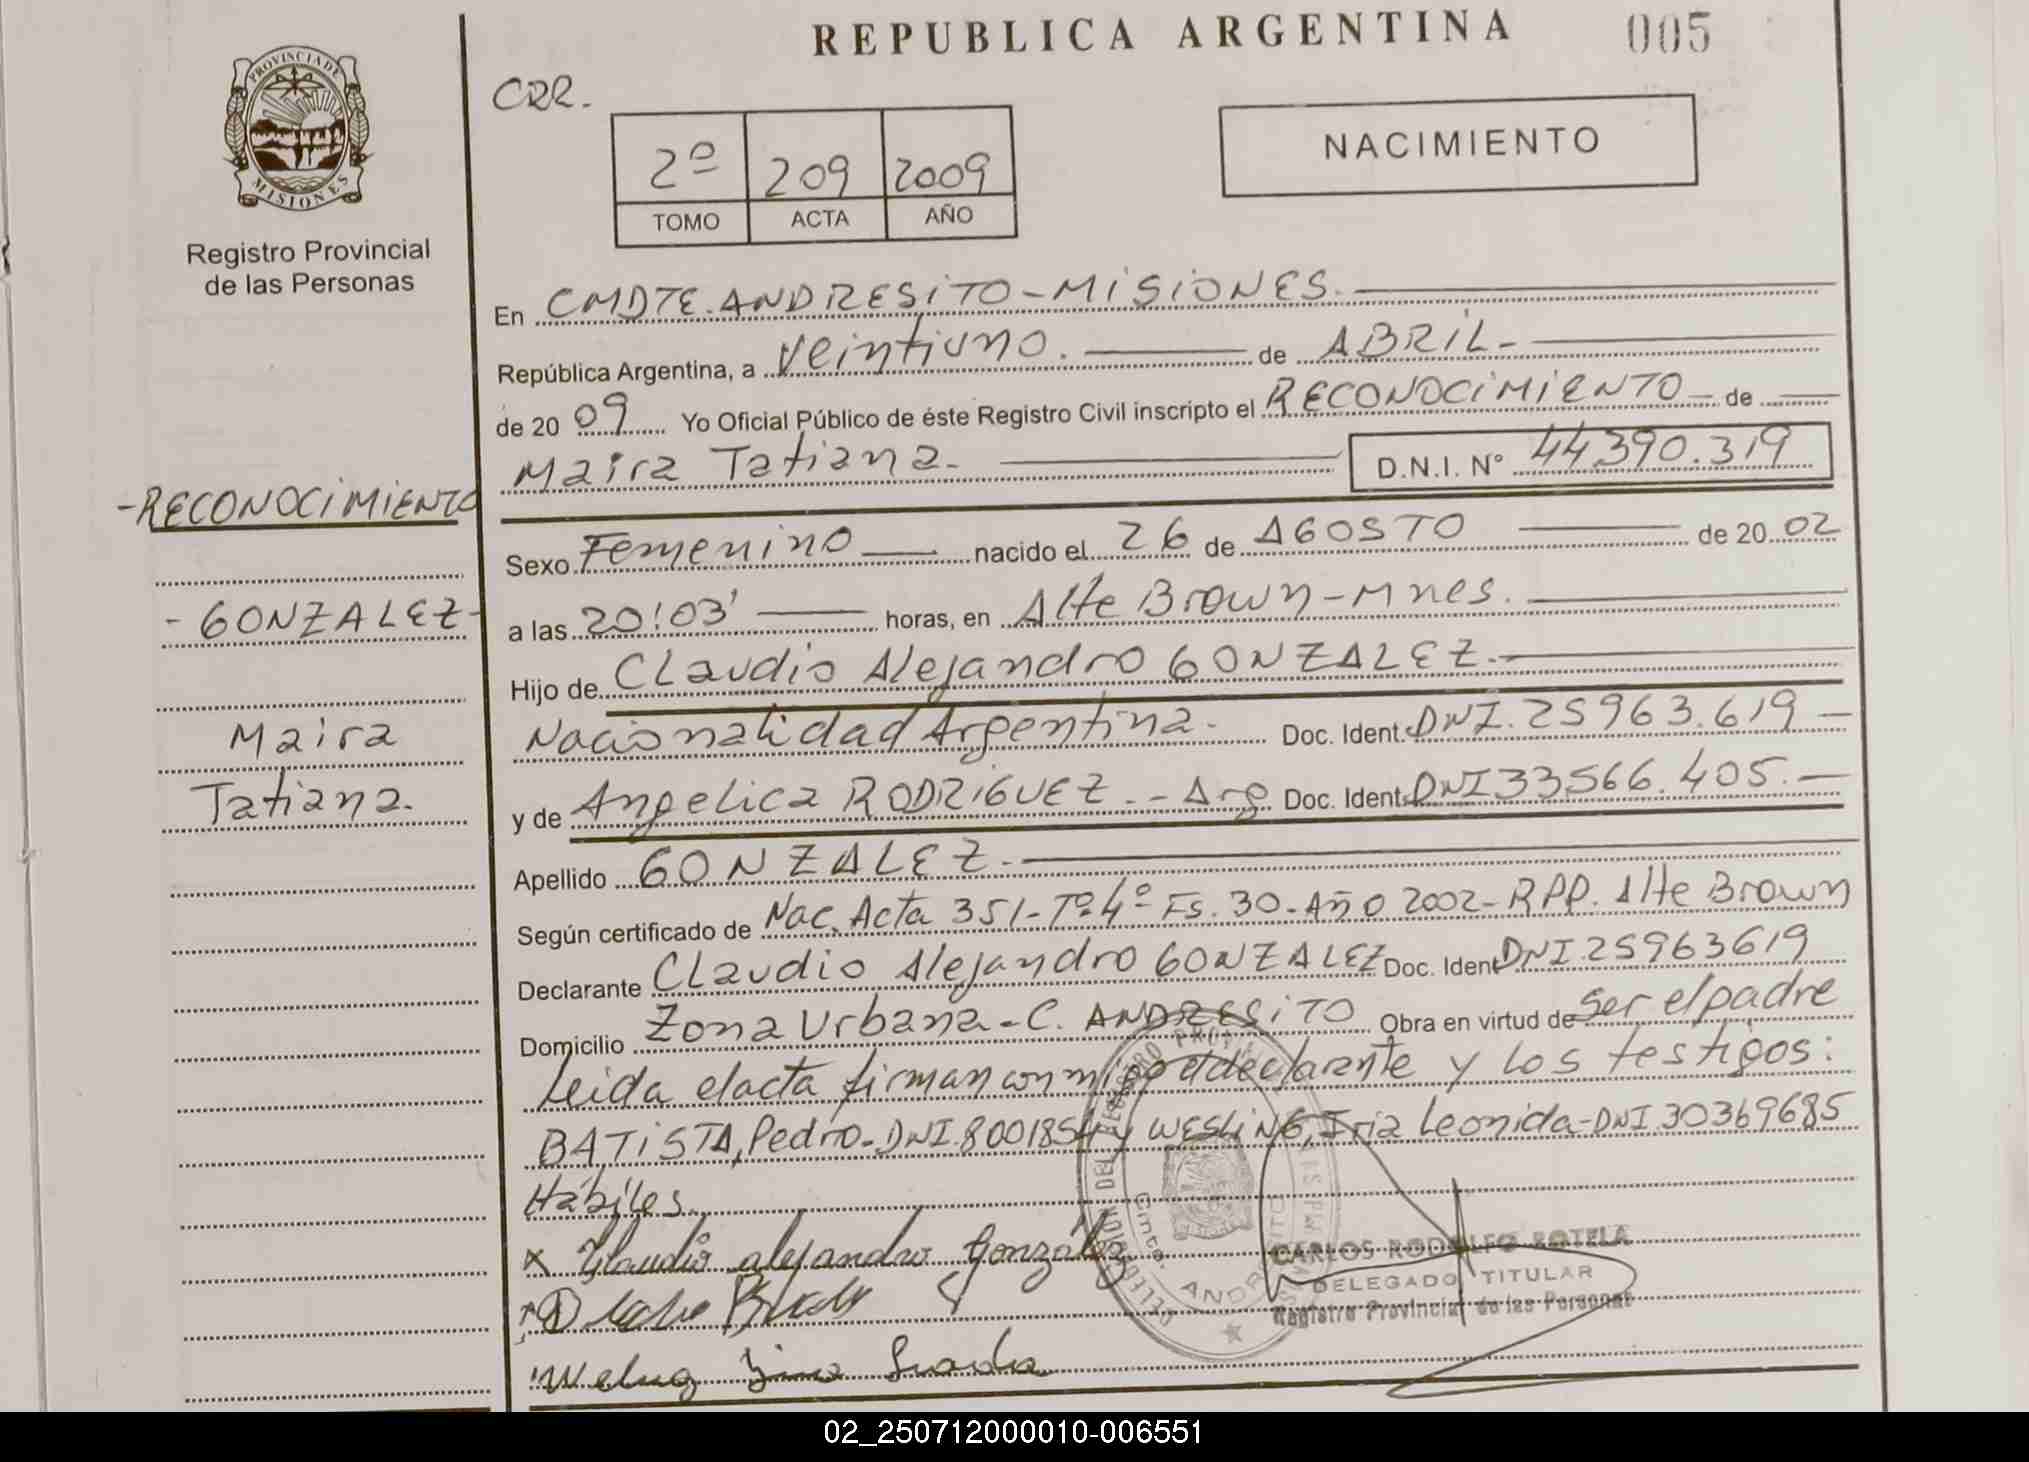 REPUBLICA ARGENTINA
005
PROVINCIA DE
MISIONES
Registro Provincial
de las Personas
CRR.
2º 209 2009
TOMO ACTA AÑO
NACIMIENTO
En CMDTE. ANDRESITO - MISIONES.
República Argentina, a Veintiuno. de ABRIL -
de 20 09 Yo Oficial Público de éste Registro Civil inscripto el RECONOCIMIENTO de
Maira Tatiana. D.N.I. N° 44390.319
-RECONOCIMIENTO
- GONZALEZ -
Maira
Tatiana.
Sexo Femenino nacido el 26 de AGOSTO de 20 02
a las 20:03' horas, en Alte Brown - Mnes.
Hijo de Claudio Alejandro GONZALEZ.
Nacionalidad Argentina. Doc. Ident. DNI. 25963.619
y de Angelica RODRIGUEZ. - Arg Doc. Ident. DNI 33566.405.
Apellido GONZALEZ.
Según certificado de Nac. Acta 351 - Tº 4º Fs. 30 - Año 2002 - RPP. Alte Brown
Declarante Claudio Alejandro GONZALEZ Doc. Ident. DNI 25963619
Domicilio Zona Urbana - C. ANDRESITO Obra en virtud de ser el padre
Leida el acta firman conmigo el declarante y los testigos:
BATISTA, Pedro - DNI. 8001854 y WESLING, Iria Leonida - DNI. 30369685
Hábiles.
x Claudio alejandro González
CARLOS RODOLFO ROTELA
DELEGADO TITULAR
Registro Provincial de las Personas
02_250712000010-006551